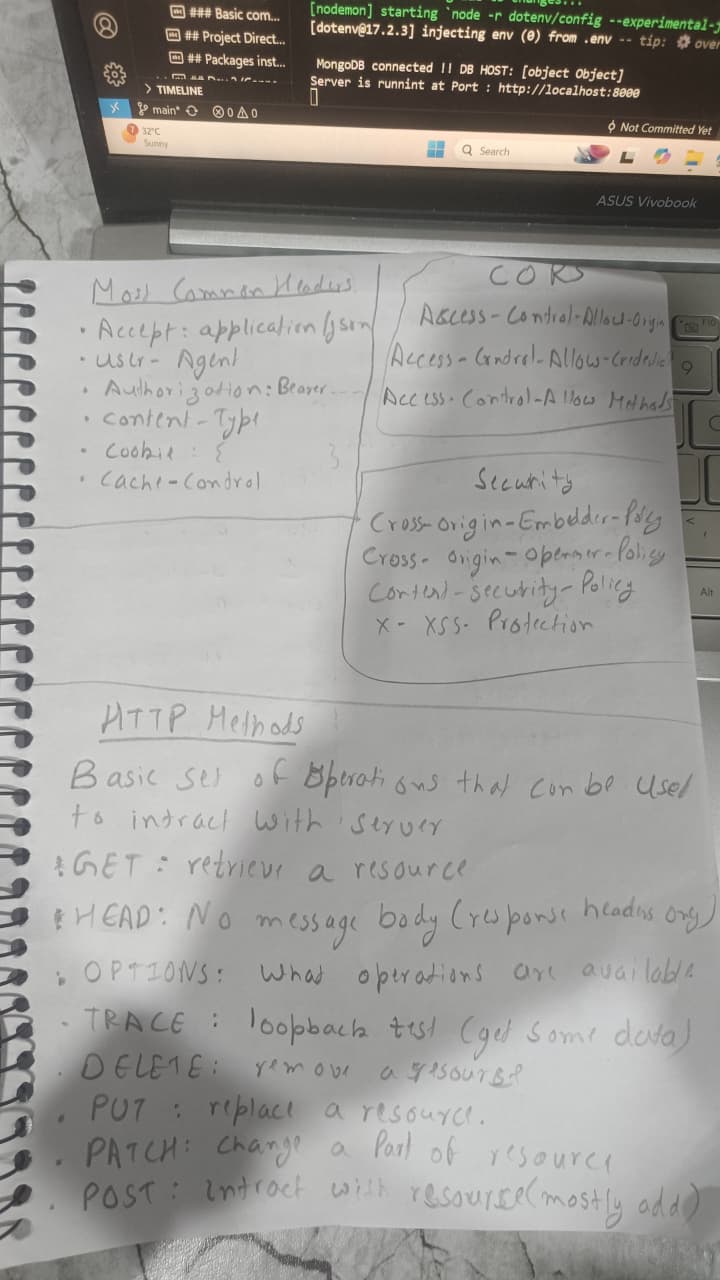 ### Basic com...
## Project Direct...
## Packages inst...
> TIMELINE
main*
0 0
[nodemon] starting `node -r dotenv/config --experimental-j
[dotenv@17.2.3] injecting env (0) from .env -- tip:
MongoDB connected !! DB HOST: [object Object]
Server is runnint at Port : http://localhost:8000
Not Committed Yet
7
32°C
Sunny
Search
ASUS Vivobook
Most Common Headers
• Accept: application/json
• User-Agent
• Authorization: Bearer ----
• Content-Type
• Cookie : { }
• Cache-Control
CORS
Access-Control-Allow-Origin
Access-Control-Allow-
Access-Control-Allow Methods
Security
Cross-origin-Embedder-Policy
Cross-origin-Openner-Policy
Content-security-Policy
X-XSS-Protection
HTTP Methods
Basic set of Operations that can be used
to intract with server
GET : retrieve a resource
HEAD: No message body (response headers only)
OPTIONS: what operations are available
TRACE : loopback test (get some data)
DELETE: remove a resourse
PUT : replace a resource.
PATCH: change a part of resource
POST : intract with resourse (mostly add)
9
Alt